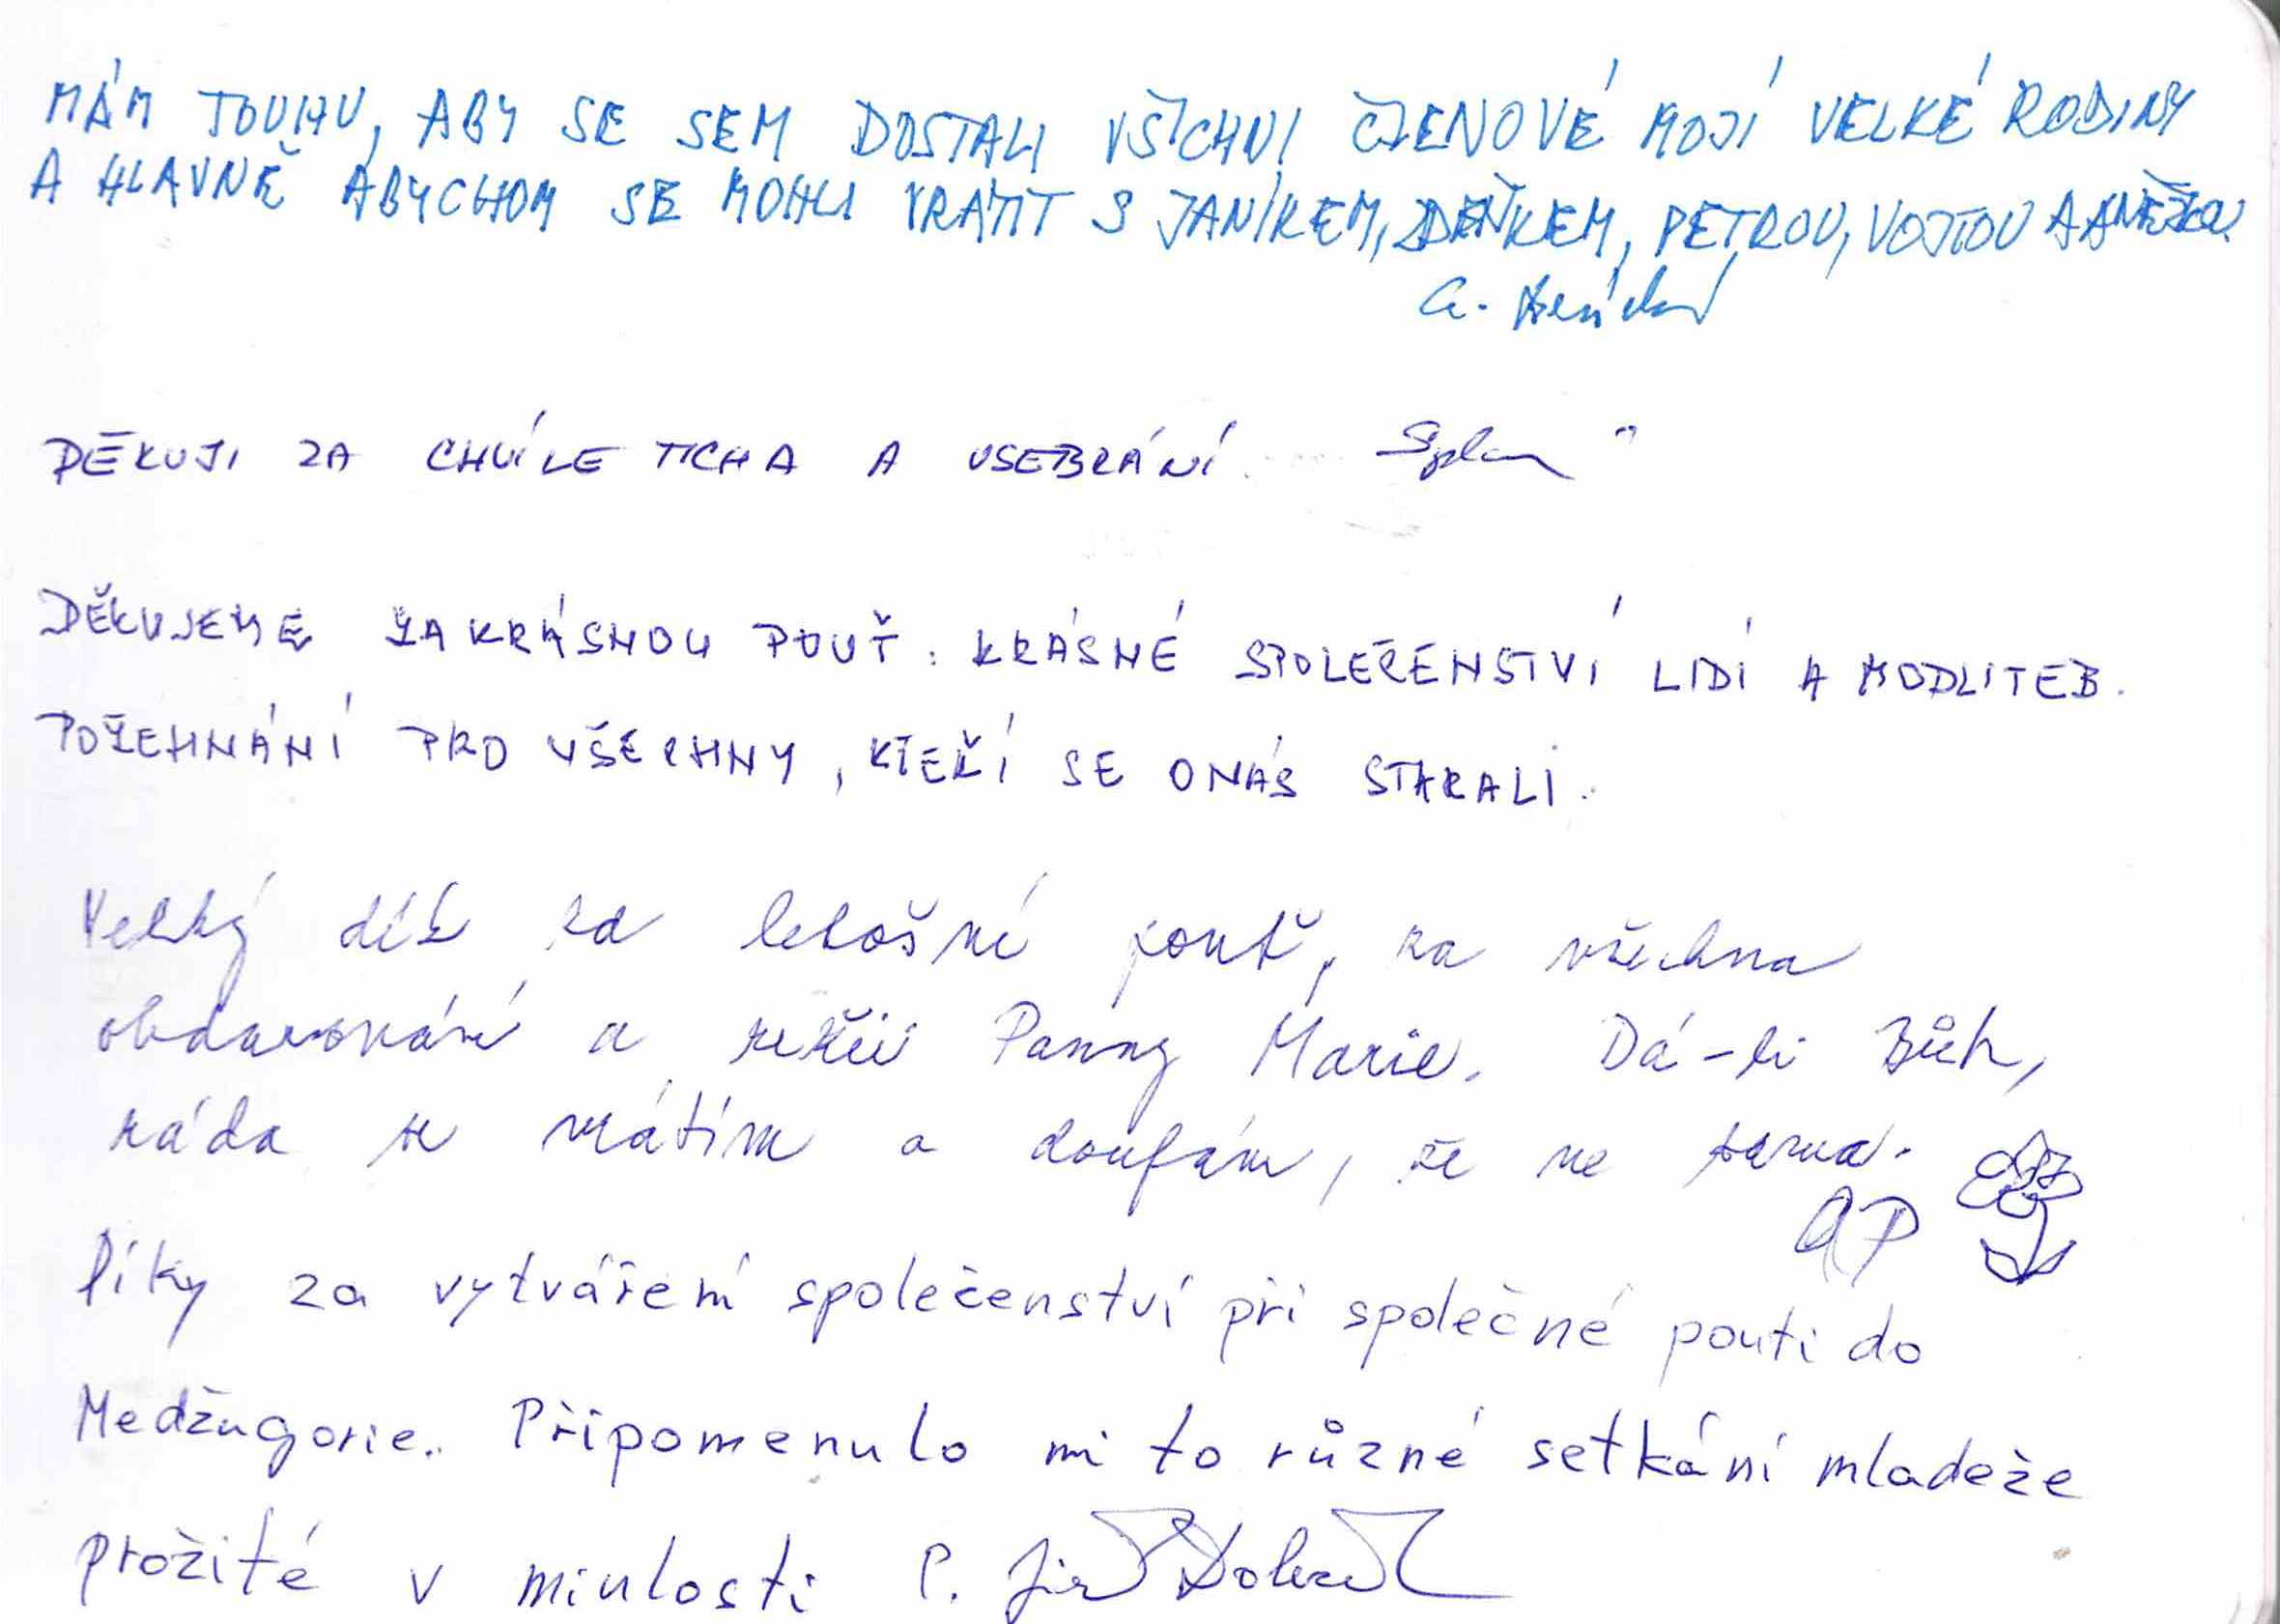 MÁM TOUHU, ABY SE SEM DOSTALI VŠICHNI ČLENOVÉ MOJÍ VELKÉ RODINY
A HLAVNĚ ABYCHOM SE MOHLI VRÁTIT S JANÍKEM, ZDEŇKEM, PETROU, VOJTOU A ANEŽKOU
DĚKUJI ZA CHVÍLE TICHA A USEBRÁNÍ.
DĚKUJEME ZA KRÁSNOU POUŤ: KRÁSNÉ SPOLEČENSTVÍ LIDÍ A MODLITEB.
POŽEHNÁNÍ PRO VŠECHNY, KTEŘÍ SE O NÁS STARALI.
Velký dík za letošní pouť, za všechna
obdarování a režii Panny Marie. Dá-li Bůh,
ráda se vrátím a doufám, že ne sama.
AP
Díky za vytváření společenství při společné pouti do
Medžugorie. Připomenulo mi to různé setkání mladeže
prožité v minulosti P. Jiří